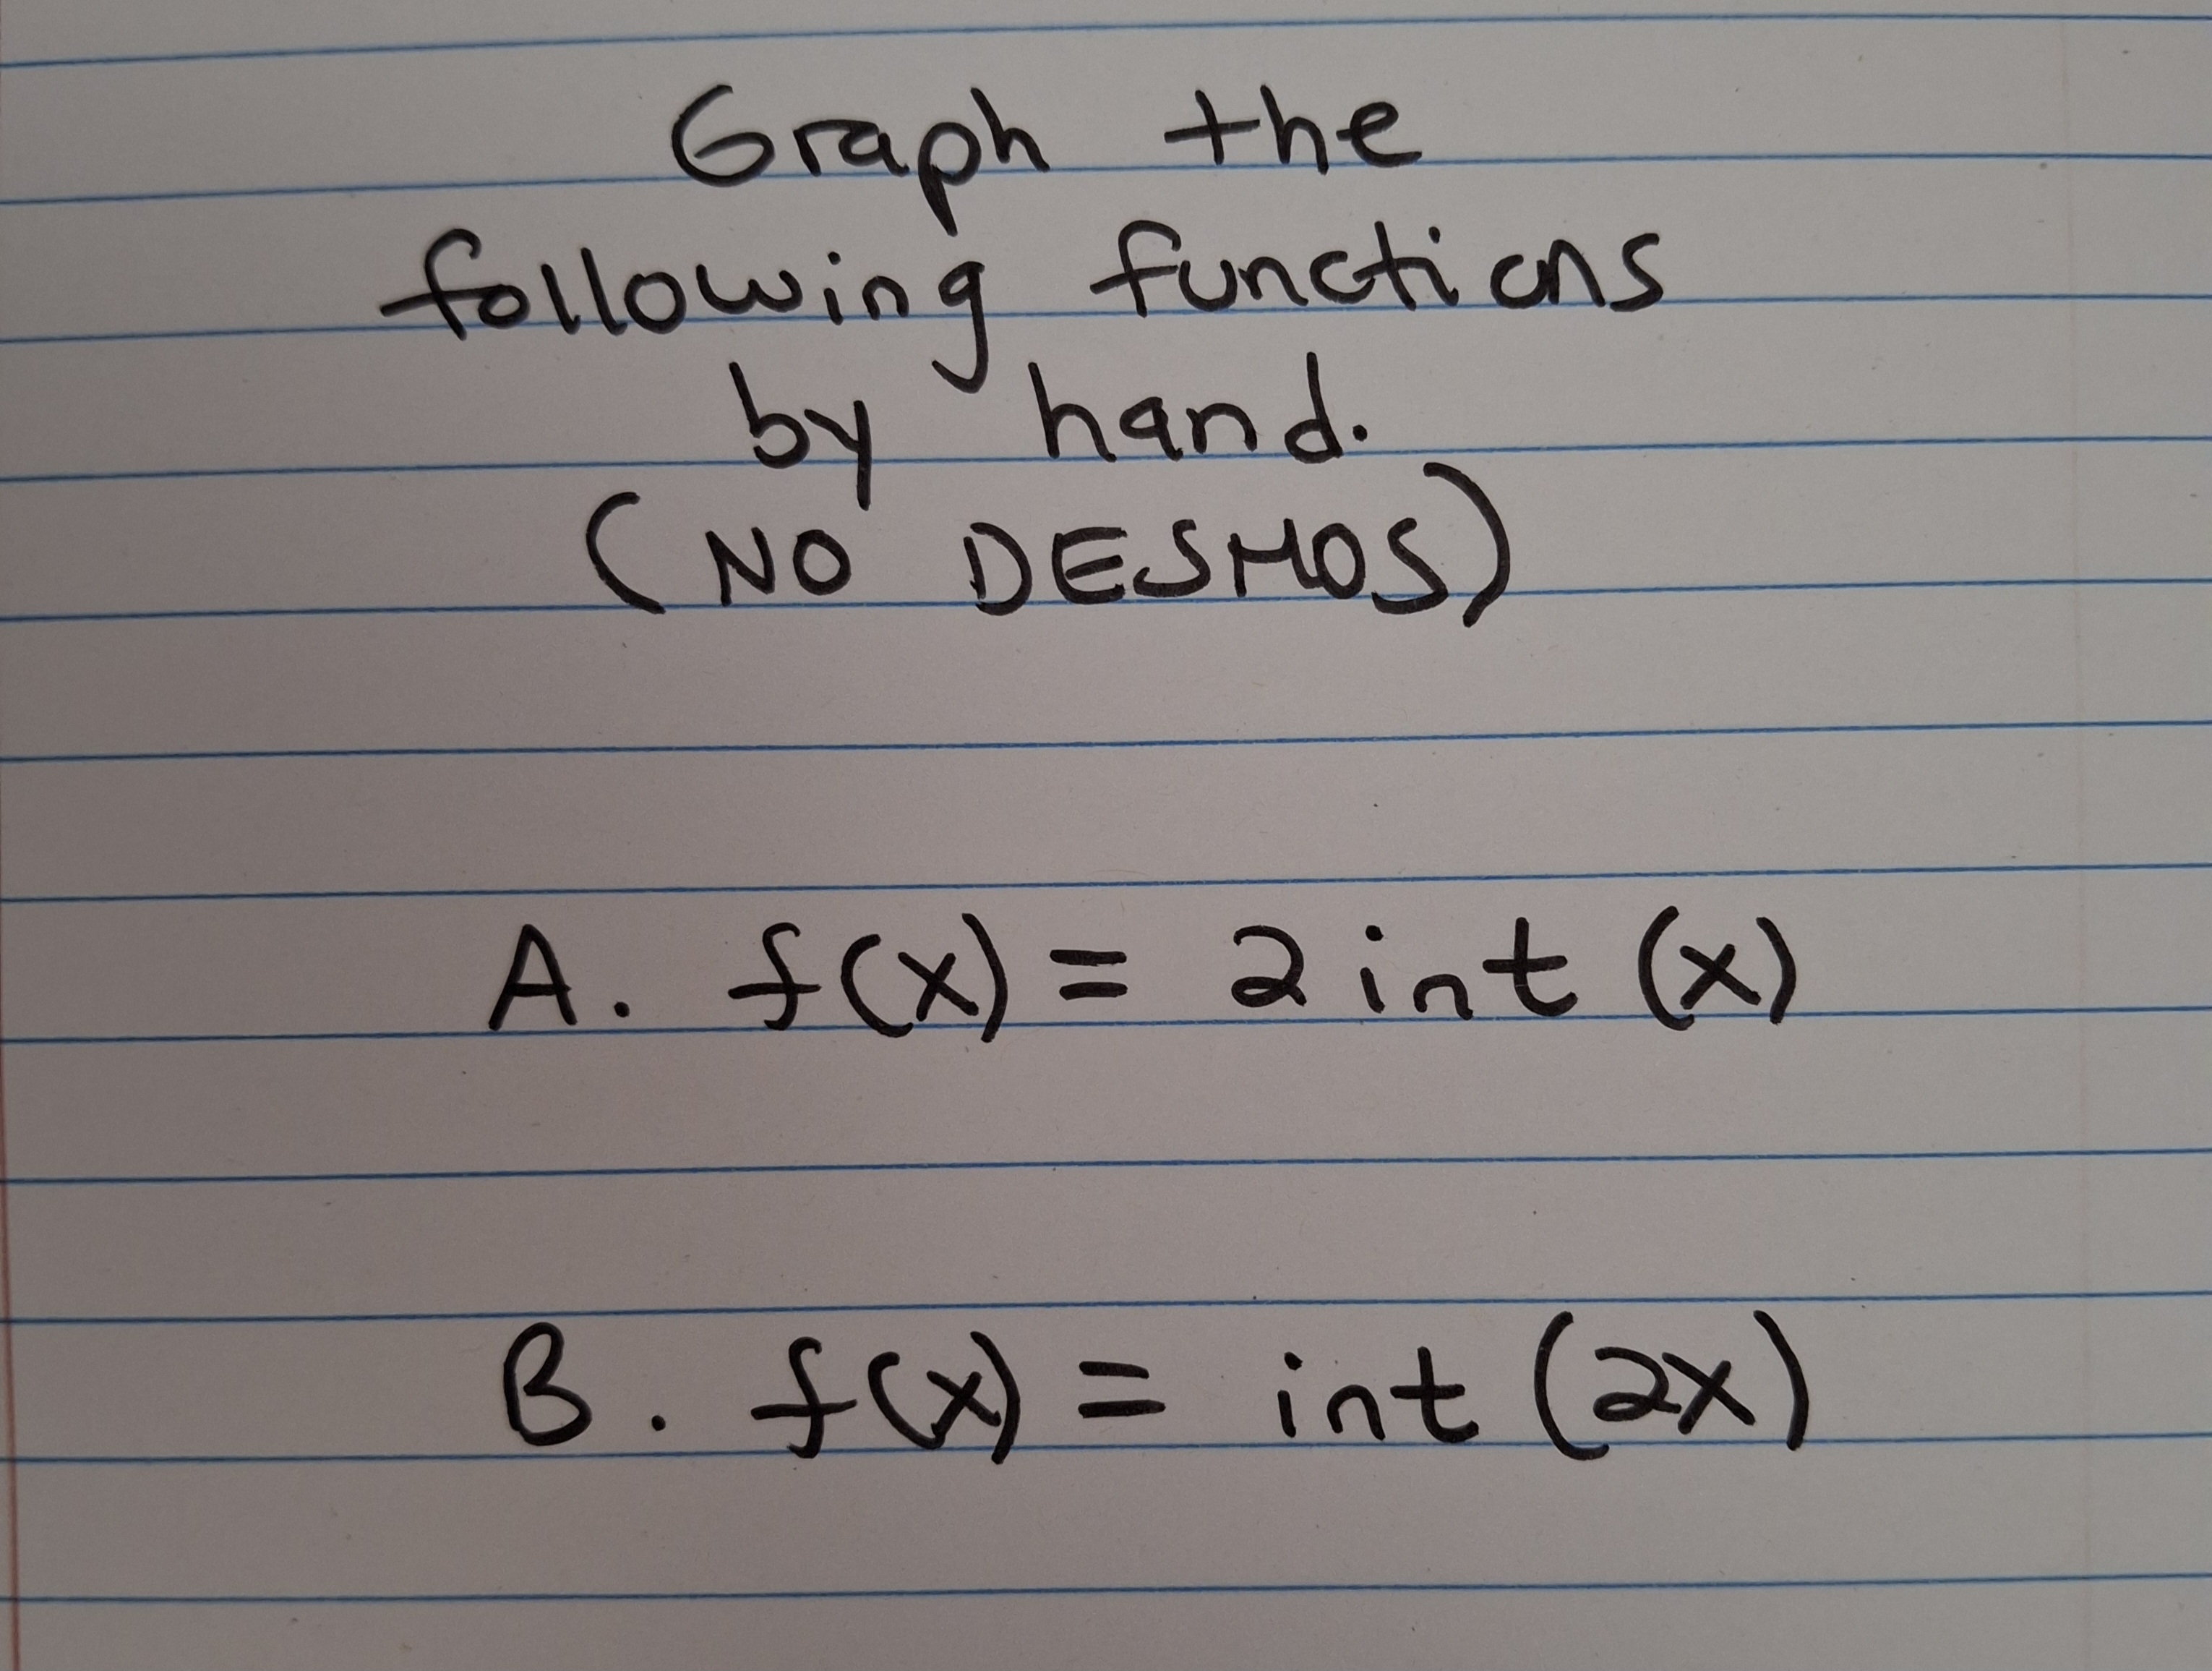 Graph the
following functions
by hand.
(NO DESMOS)
A. f(x) = 2 int (x)
B. f(x) = int (2x)